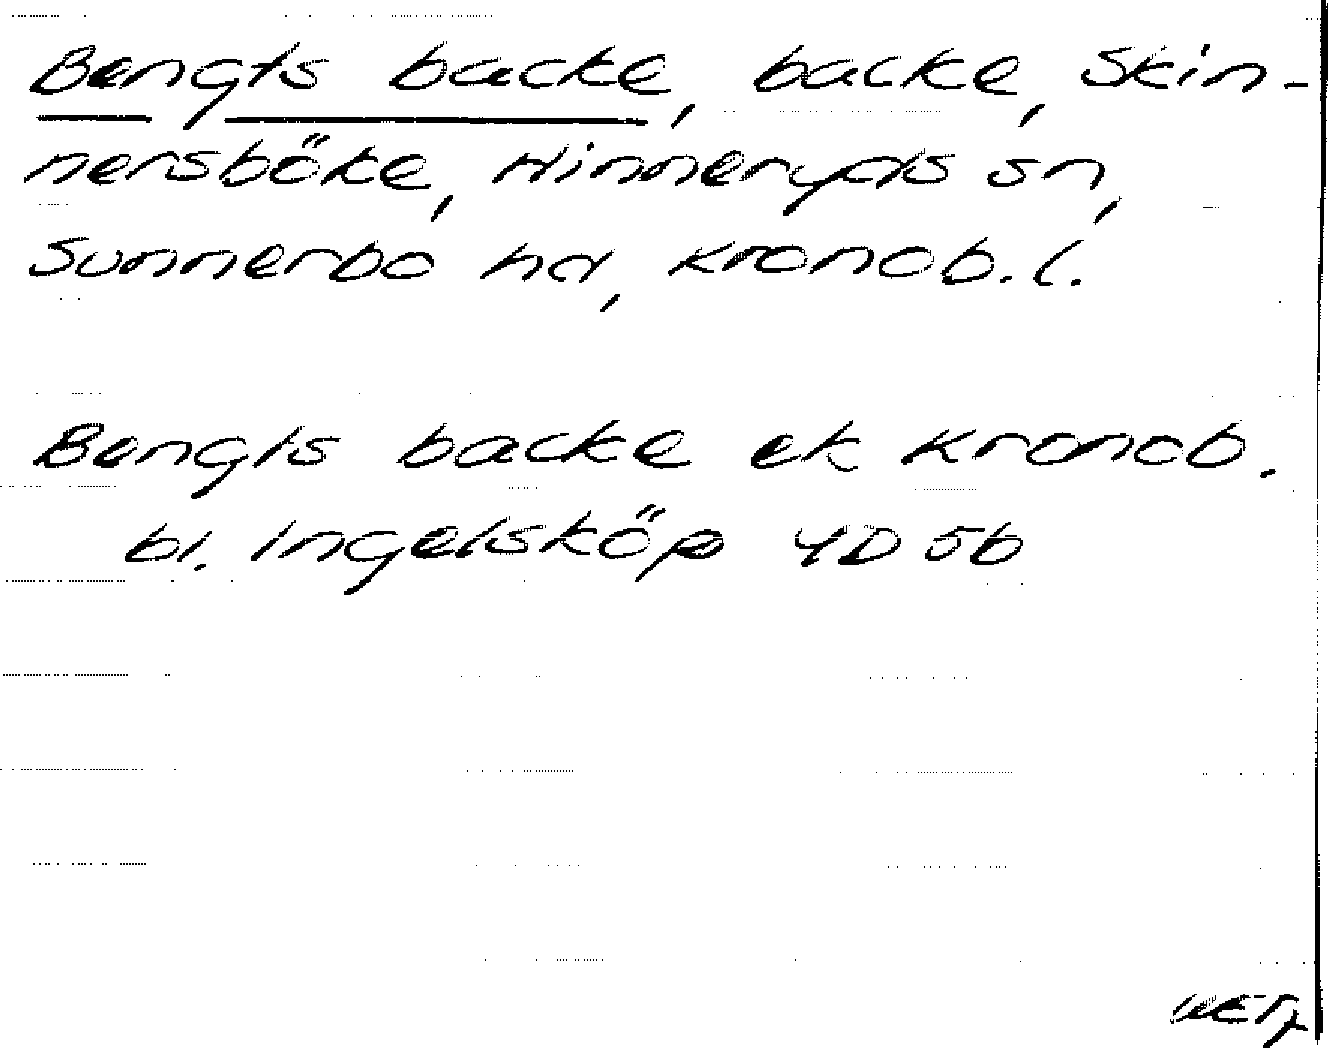 Bengts backe, backe, Skin-
nersböke, Hinneryds sn,
Sunnerbo hd, Kronob. l.
Bengts backe ek Kronob.
bl. Ingelsköp 4D 5b